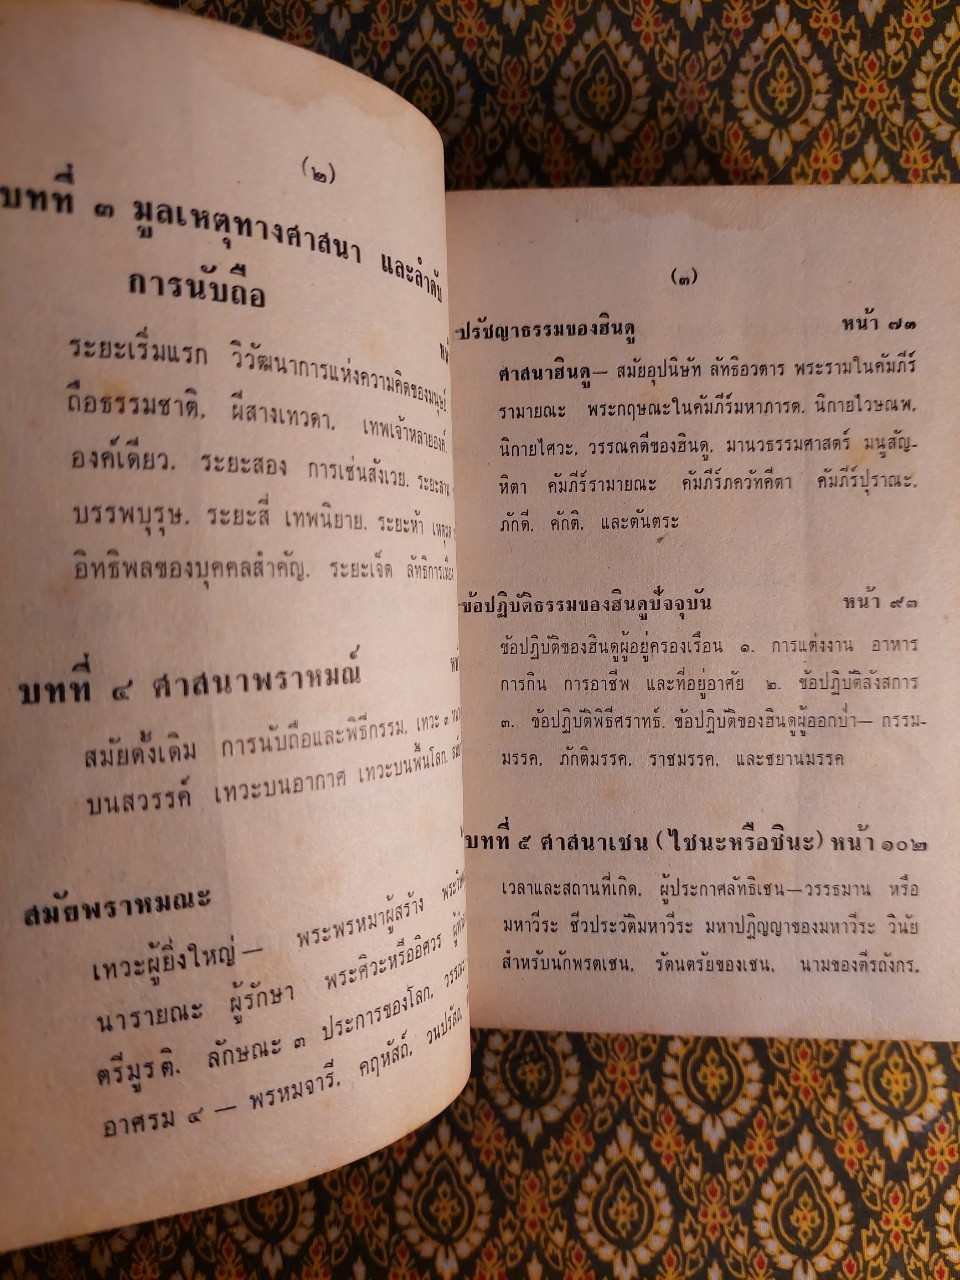 (๒)
บทที่ ๓ มูลเหตุทางศาสนา และลำดับ
การนับถือ
ระยะเริ่มแรก วิวัฒนาการแห่งความคิดของมนุษย์
ถือธรรมชาติ, ผีสางเทวดา, เทพเจ้าหลายองค์
องค์เดียว. ระยะสอง การเซ่นสังเวย. ระยะสาม
บรรพบุรุษ. ระยะสี่ เทพนิยาย. ระยะห้า
อิทธิพลของบุคคลสำคัญ. ระยะเจ็ด ลัทธิการเมือง
บทที่ ๔ ศาสนาพราหมณ์
สมัยดั้งเดิม การนับถือและพิธีกรรม, เทวะ ๓
บนสวรรค์ เทวะบนอากาศ เทวะบนพื้นโลก.
สมัยพราหมณะ
เทวะผู้ยิ่งใหญ่ — พระพรหมาผู้สร้าง
นารายณะ ผู้รักษา พระศิวะหรืออิศวร
ตรีมูรติ. ลักษณะ ๓ ประการของโลก, วรรณะ
อาศรม ๔ — พรหมจารี, คฤหัสถ์, วนปรัสถ,
(๓)
ปรัชญาธรรมของฮินดู หน้า ๗๓
ศาสนาฮินดู— สมัยอุปนิษัท ลัทธิอวตาร พระรามในคัมภีร์
รามายณะ พระกฤษณะในคัมภีร์มหาภารต, นิกายไวษณพ,
นิกายไศวะ, วรรณคดีของฮินดู, มานวธรรมศาสตร์ มนูสัญ-
หิตา คัมภีร์รามายณะ คัมภีร์ภควัทคีตา คัมภีร์ปุราณะ,
ภักดี, ศักติ, และตันตระ
ข้อปฏิบัติธรรมของฮินดูปัจจุบัน หน้า ๙๓
ข้อปฏิบัติของฮินดูผู้อยู่ครองเรือน ๑. การแต่งงาน อาหาร
การกิน การอาชีพ และที่อยู่อาศัย ๒. ข้อปฏิบัติสังสการ
๓. ข้อปฏิบัติพิธีศราทธ์. ข้อปฏิบัติของฮินดูผู้ออกป่า— กรรม-
มรรค, ภักติมรรค, ราชมรรค, และชยานมรรค
บทที่ ๕ ศาสนาเชน (ไชนะหรือชินะ) หน้า ๑๐๒
เวลาและสถานที่เกิด, ผู้ประกาศลัทธิเชน—วรรธมาน หรือ
มหาวีระ ชีวประวัติมหาวีระ มหาปฏิญญาของมหาวีระ วินัย
สำหรับนักพรตเชน, รัตนตรัยของเชน, นามของตีรถังกร,